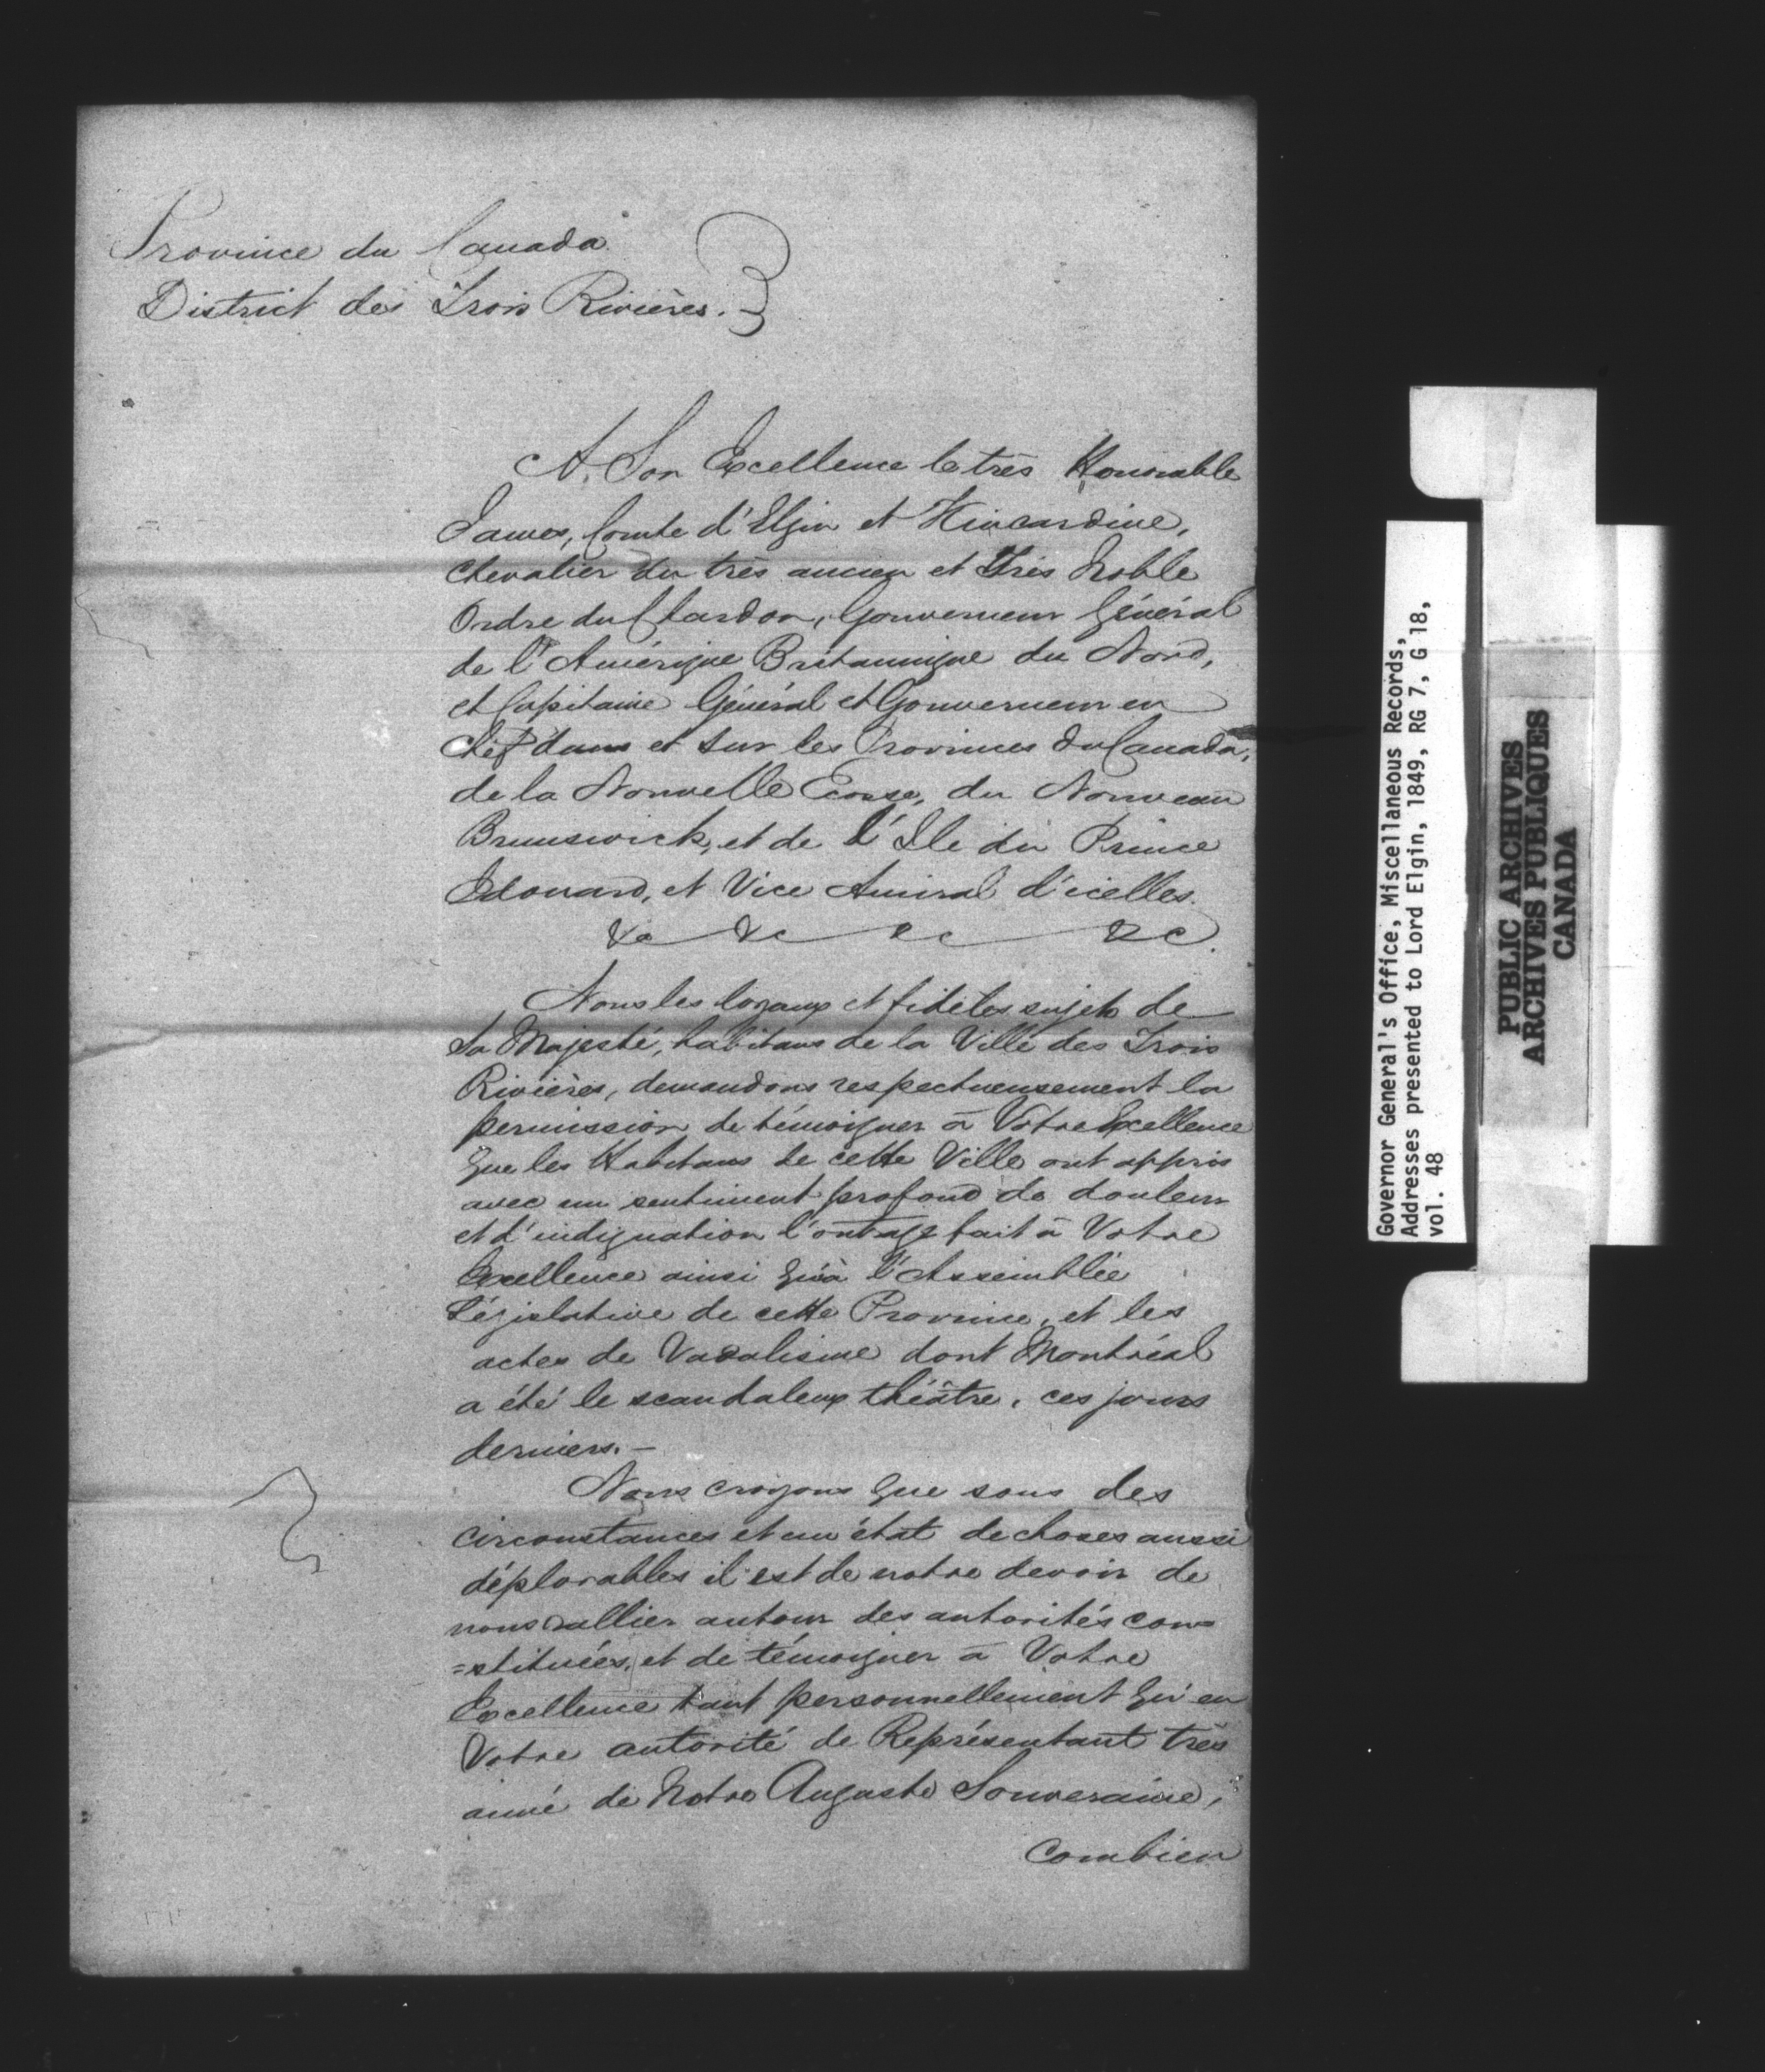 Province du Canada
District des Trois Rivières.
A Son Excellence le très Honorable
James, Comte d'Elgin et Kincardine,
Chevalier du très ancien et Très Noble
Ordre du Chardon, Gouverneur Général
de l'Amérique Britannique du Nord,
et Capitaine Général et Gouverneur en
Chef dans et sur les Provinces du Canada,
de la Nouvelle Ecosse, du Nouveau
Brunswick, et de l'Ile du Prince
Edouard, et Vice Amiral d'icelles.
&c &c &c &c.
Nous les loyaux et fidèles sujets de
Sa Majesté, habitans de la Ville des Trois
Rivières, demandons respectueusement la
permission de témoigner à Votre Excellence
que les Habitans de cette Ville ont appris
avec un sentiment profond de douleur
et d'indignation l'outrage fait à Votre
Excellence ainsi qu'à l'Assemblée
Législative de cette Province, et les
actes de Vadalisme dont Montréal
a été le scandaleux théâtre, ces jours
derniers.—
Nous croyons que sous des
circonstances et un état de choses aussi
déplorables il est de notre devoir de
nous rallier autour des autorités con=
=stituées, et de témoigner à Votre
Excellence tant personnellement qu'en
Votre autorité de Représentant très
aimé de Notre Auguste Souveraine,
combien
Governor General's Office, Miscellaneous Records,
Addresses presented to Lord Elgin, 1849, RG 7, G 18,
vol. 48
PUBLIC ARCHIVES
ARCHIVES PUBLIQUES
CANADA